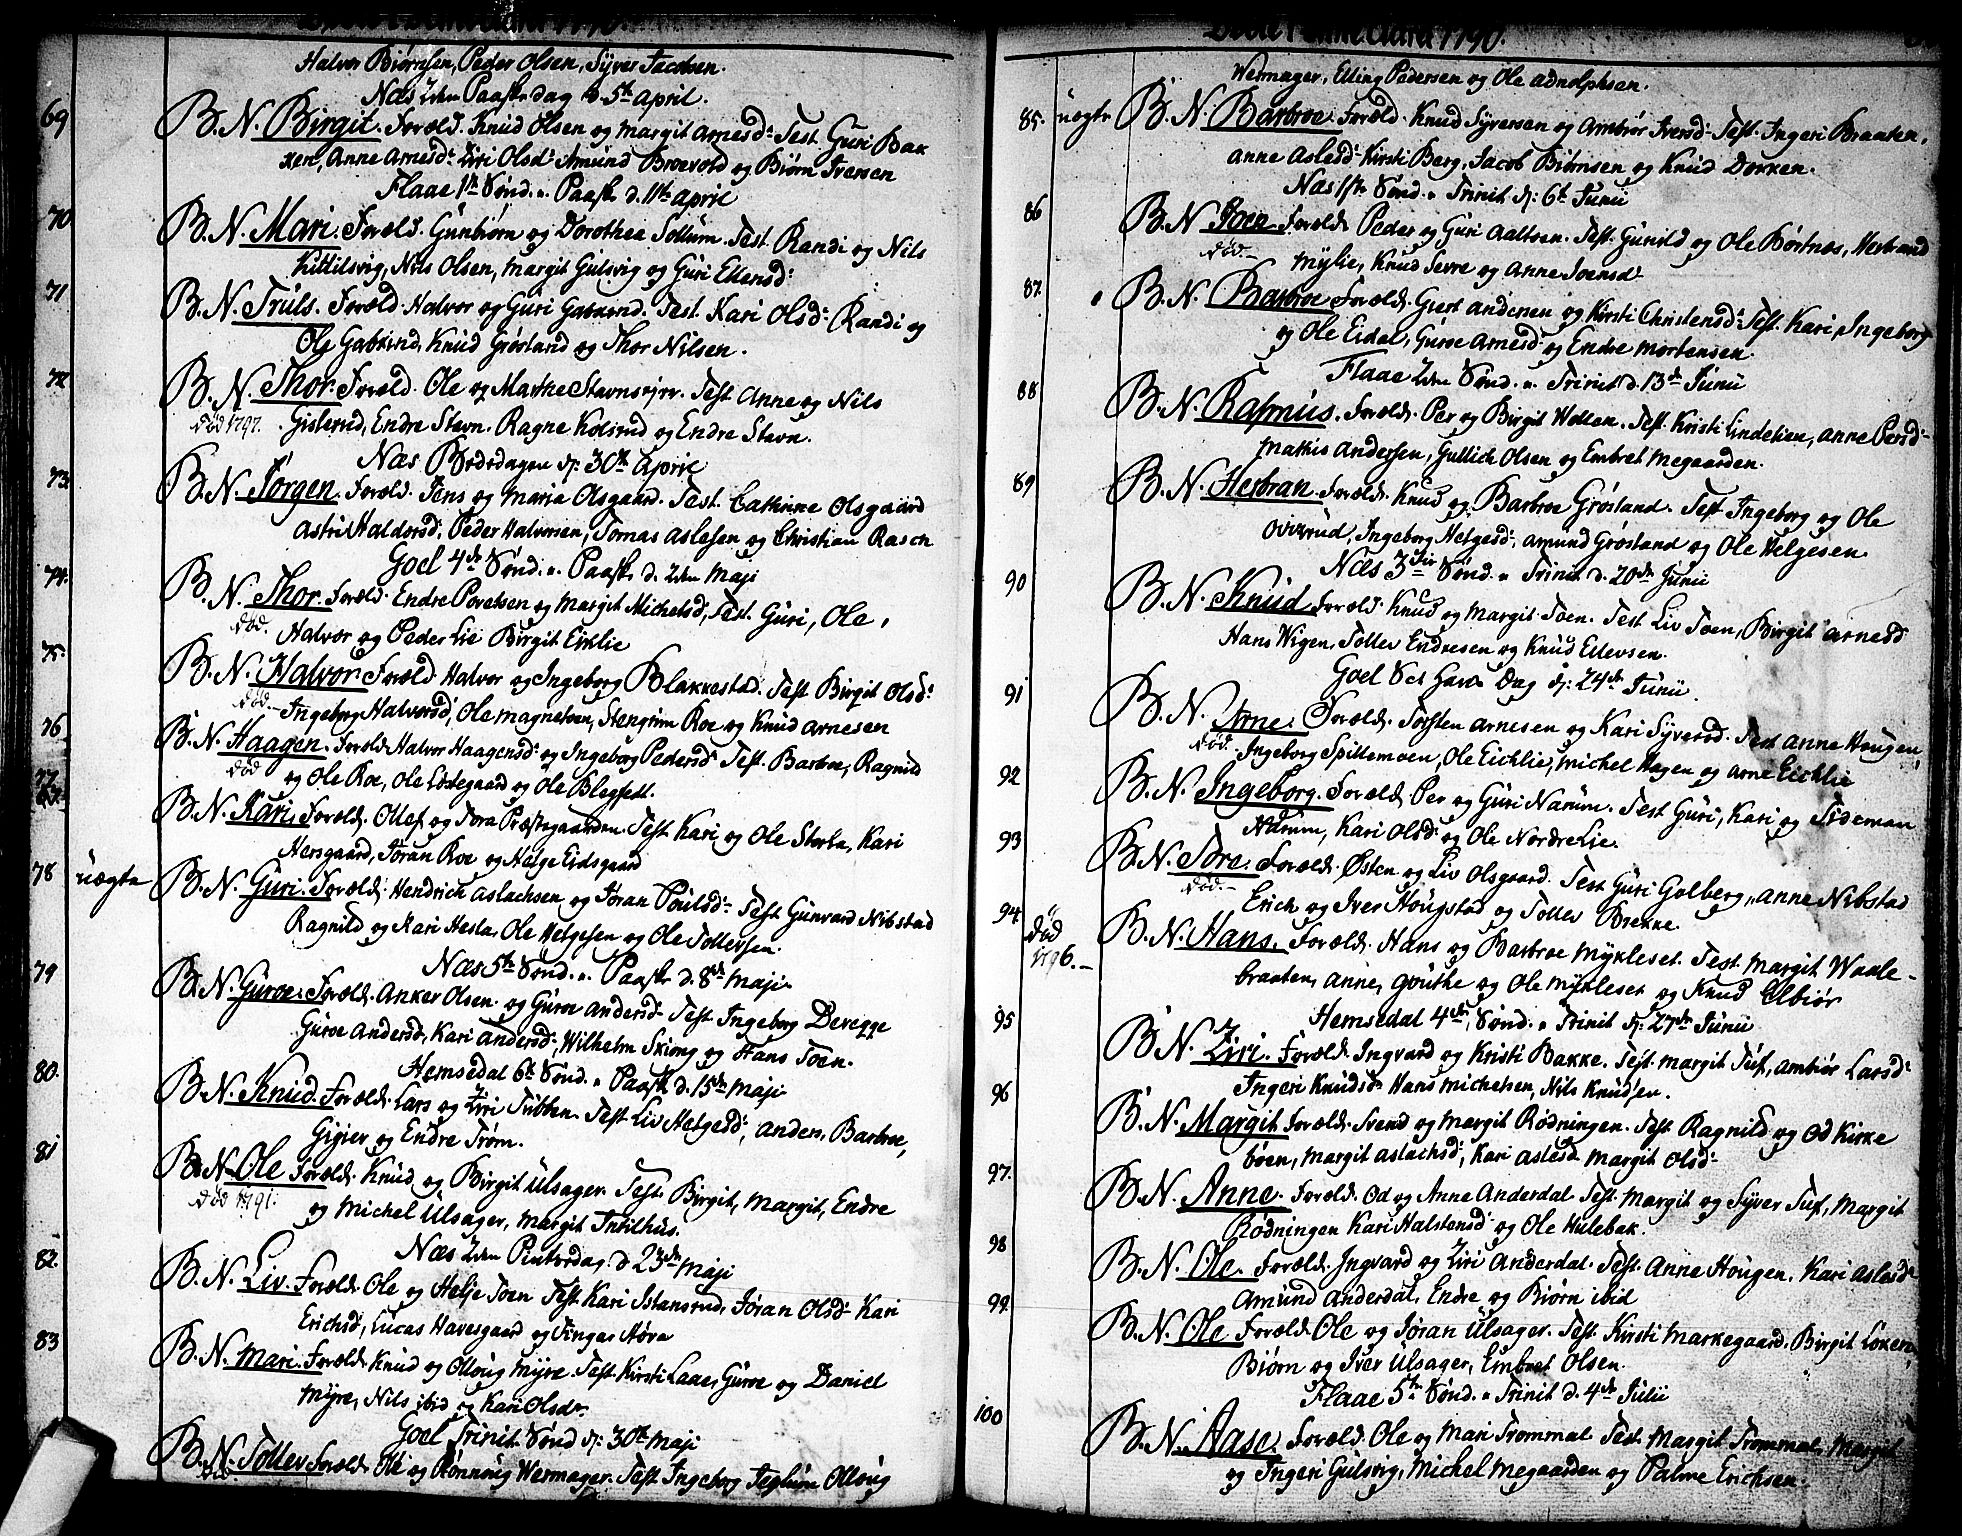 Halvor Biørnsen, Peder Olsen, Syver Jacobsen.
Næs 2den Paaske dag d. 5th April.
69 B. N. Birgit. Foræld. Knud Olsen og Margit Arnesd: Test. Guri Bak
ken, Anne Arnesd: Ziri Olsd: Amund Broevold og Biørn Iversen
Flaae 1te Sønd. p. Paask d. 11th April
70 B. N. Mari. Foræld. Gunbiørn og Dorothea Sollum. Test. Randi og Nils
Kittilsvig, Nils Olsen, Margit Gulsvig og Guri Ellensd:
71 B. N. Truls. Foræld. Halvor og Guri Gabkrud. Test. Kari Olsd: Randi og
Ole Gabkrud, Knud Grøsland og Thor Nilsen.
72 B. N. Thor. Foræld. Ole og Marthe Stavn. Test Anne og Nils
død 1797. Gislerud, Endre Stavn. Ragne Kolsrud og Endre Stavn.
Næs Bededagen d: 30th April
73 B. N. Jørgen. Foræld. Jens og Maria Olsgaard. Test. Cathrine Olsgaard
Astri Haldorsd. Peder Halvorsen, Tomas Aslesen og Christian Rasch
Goel 4de Sønd. p. Paask d. 2den Maji
74. B. N. Thor. Foræld. Endre Povelsen og Margit Michelsd, Test. Guri, Ole,
død. Halvor og Peder Lie Birgit Eiklie
75. B. N. Halvor. Foræld Halvor og Ingeborg Blakkestad. Test Birgit Olsd:
død. Ingeborg Halvorsd, Ole Magnetoen, Stengrim Roe og Knud Arnesen
76 B. N. Haagen. Foræld. Halvor Haagensd: og Ingeborg Pedersd: Test Barbroe, Ragnild
død og Ole Roe, Ole Endegaard og Ole Blegsedt.
77 B. N. Kari, Foræld. Ollef og Tora Præstegaarden. Test Kari og Ole Storla, Kari
Hersgaard, Jøran Roe og Helge Eidsgaard
78 uægte B. N. Guri. Foræld. Hendrich Aslachsen og Jøran Poulsd: Test Gunvard Nibstad
Ragnild og Kari Hesla, Ole Helgesen og Ole Tollevsen.
Næs 5te Sønd. p. Paask d. 8de Maji
79 B. N. Guroe. Foræld. Anker Olsen. og Guroe Andersd. Test Ingeborg Deregge
Guroe Andersd, Kari Andersd, Wilhelm Skiong og Hans Toen.
Hemsedal 6te Sønd. p. Paask d. 15de Maji
80. B. N. Knud. Foræld. Lars og Ziri Tubben. Test Liv Helgesd, Anders, Barbroe,
Gigier og Endre Trøm.
81 B. N. Ole Foræld. Knud og Birgit Ulsager. Test. Birgit, Margit, Endre
død 1791. og Michel Ulsager, Margit Intilhus.
Næs 2den Pintsedag d 23de Maji
82. B. N. Liv. Foræld. Ole og Helje Toen Test Kari Istansrud, Jøran Olsd: Kari
Erichsd, Lucas Havesgaard og Tingar Høva
83 B. N. Mari. Foræld. Knud og Olloug Myre. Test. Kirsti Laae, Guroe og Daniel
Myre, Nils ibid og Kari Olsdr.
Goel Trinit. Sønd d: 30th Maji
B. N. Tollev Foræld. Ole og Rønnoug Wermager. Test Ingeborg Teglum Olloug
død
Døbte i 1790.
Wermager, Elling Pedersen og Ole Adnolphsen.
85. uegte B. N. Barbroe Foræld. Knud Syversen og Ambiør Iversd: Test. Ingeri Braaten,
Anne Aslesd: Kirsti Berg, Jacob Biørnsen og Knud Dokken.
Næs 1ste Sønd. p. Trinit d: 6te Junii
86 B. N Joen. Foræld. Peder og Guri Aaltoen. Test. Gunild og Ole Børtnæs, Herbrand
død. Mylie, Knud Sevre og Anne Joensd.
87. B. N. Barbroe Foræld. Giert Andersen og Kirsti Christensd: Test. Kari, Ingeborg
og Ole Eidal, Guroe Arnesd og Endre Mortensen.
Flaae 2den Sønd. p. Trinit d. 13de Junii
88 B. N. Rasmus. Foræld. Per og Birgit Wollen. Test. Kristi Lindelien, Anne Persd:
Mathis Andersen, Gullich Olsen og Embret Megaarden.
89 B. N. Herbran. Foræld. Knud og Barbroe Grøsland. Test Ingeborg og Ole
Ovizrud, Ingeborg Helgesd, Amund Grøsland og Ole Helgesen.
Næs 3die Sønd. p Trinit d. 20de Junii
90 B. N. Knud. Foræld. Knud og Margit Toen. Test Liv Toen, Birgit Arnesd
Hans Wigen, Tollev Endresen og Knud Ellevsen.
Goel Sct Hans Dag d: 24de Junii
91 B. N. Arne. Foræld. Torsten Arnesen og Kari Syversd. Test Anne Hougen,
død. Ingeborg Spillemoen, Ole Eichlie, Michel Hagen og Arne Eichlie
92 B. N. Ingeborg. Foræld. Per og Guri Narum. Test Guri, Kari og Tideman
Narum, Kari Olsd: og Ole Nordre Lie.
93 B. N. Tore. Foræld. Østen og Liv Olsgaard. Test Guri Golberg, Anne Nibstad
død. Erich og Iver Hougstad og Tollev Brekke.
94 død 1796. B. N. Hans. Foræld. Hans og Barbroe Mykleset. Test. Margit Waale-
braaten, Anne, Gouthe og Ole Mykleset og Knud Elbiør
Hemsedal 4de Sønd. p Trinit d: 27de Junii
95 B. N. Ziri. Foræld. Ingvard og Kristi Bakke. Test. Margit Tuf, Ambiør Larsd:
Ingeri Knudsd. Hans Michelsen, Nils Knudsen.
96 B. N. Margit Foræld. Svend og Margit Rødningen. Test Ragnild og Od Kirke
bøen, Margit Aslachsd, Kari Aslesd Margit Olsd.
97. B. N. Anne. Foræld. Od og Anne Anderdal. Test. Margit og Syver Tuf, Margit
Rødningen Kari Halstensd. og Ole Hulebak.
98 B. N. Ole. Foræld. Ingvard og Ziri Anderdal. Test. Anne Hougen. Kari Aslesd:
Amund Anderdal, Endre og Biørn ibid
99 B. N. Ole Foræld. Ole og Jøran Ulsager. Test. Kirsti Markegaard, Birgit Løken,
Biørn og Iver Ulsager, Embret Olsen.
Flaae 5te Sønd. p Trinit d. 4de Julii
100 B. N. Aase. Foræld. Ole og Mari Trommal Test. Margit Trommal, Margit
og Ingeri Gulsvig, Michel Megaarden og Palme Erichsen.